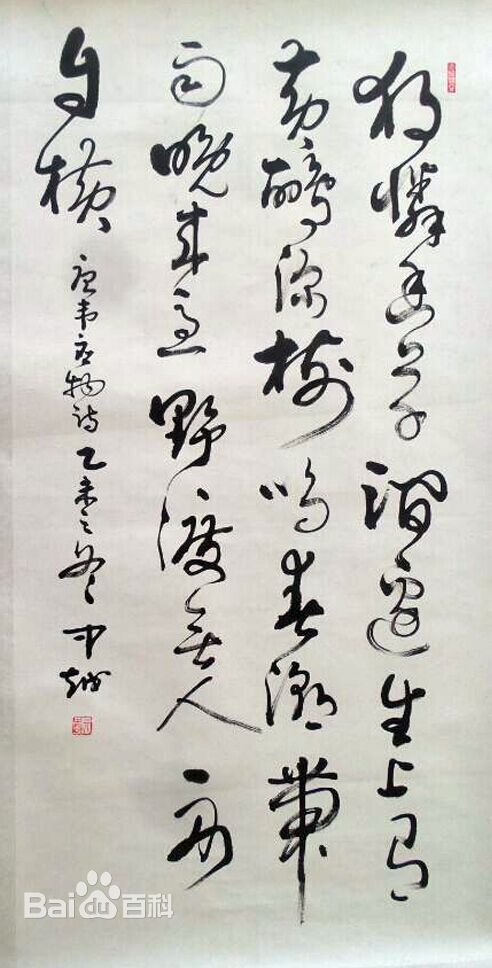 独怜幽草涧边生上有
黄鹂深树鸣春潮带
雨晚来急野渡无人舟
自横
唐韦应物诗乙未之冬中越
Bai du 百科